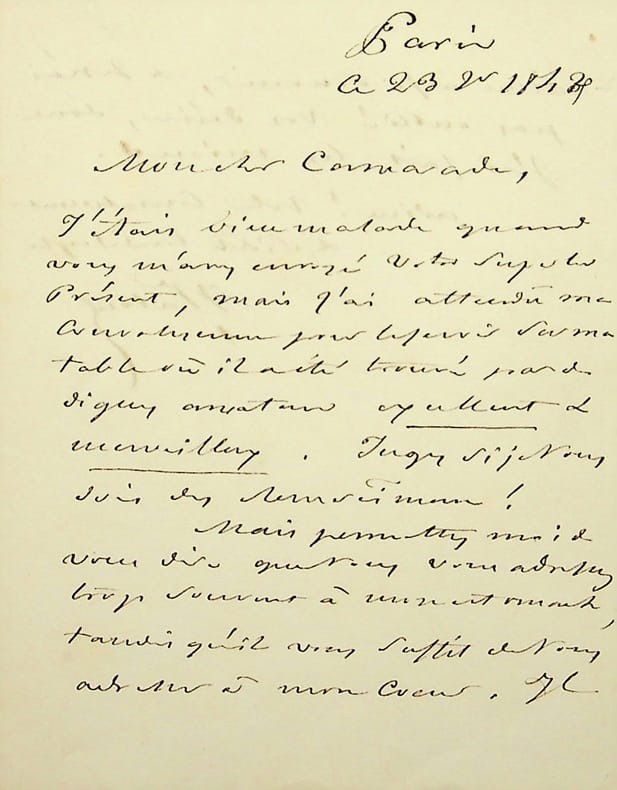 Paris
Ce 23 Xbr 184
Mon cher Camarade,
J'étais bien malade quand
vous m'avez envoyé votre superbe
Présent, mais j'ai attendu ma
Convalescence pour le servir sur ma
table où il a été trouvé par de
dignes amateurs excellent &
merveilleux. Jugez si je vous
dois des remerciemens !
Mais permettez moi de
vous dire que vous vous adressez
trop souvent à mon estomach,
tandis qu'il vous suffit de vous
adresser à mon Coeur. Il